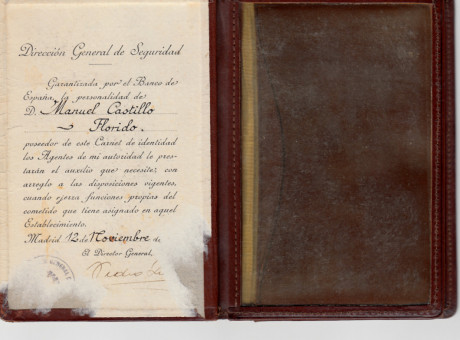 Dirección General de Seguridad
Garantizada por el Banco de
España, la personalidad de
D. Manuel Castillo
Florido.
poseedor de este Carnet de identidad
los Agentes de mi autoridad le pres-
tarán el auxilio que necesite; con
arreglo a las disposiciones vigentes,
cuando ejerza funciones propias del
cometido que tiene asignado en aquel
Establecimiento.
Madrid 12 de Noviembre de
El Director General,